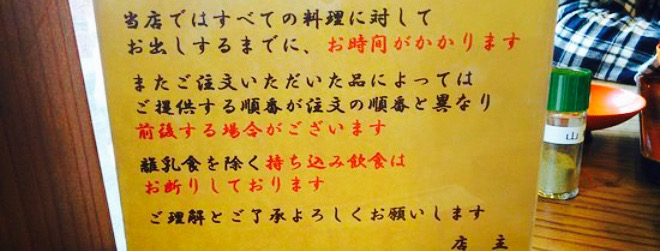 当店ではすべての料理に対して
お出しするまでに、お時間がかかります
またご注文いただいた品によっては
ご提供する順番が注文の順番と異なり
前後する場合がございます
離乳食を除く持ち込み飲食は
お断りしております
ご理解とご了承よろしくお願いします
店主
山